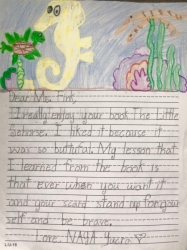 Dear Ms. Fink,
I really enjoy your book The Little
Sehorse. I liked it because it
was so butiful. My lesson that
I learned from the book is
that ever when you want it
and your scard stand up for your
self and be brave.
Love, NAYA